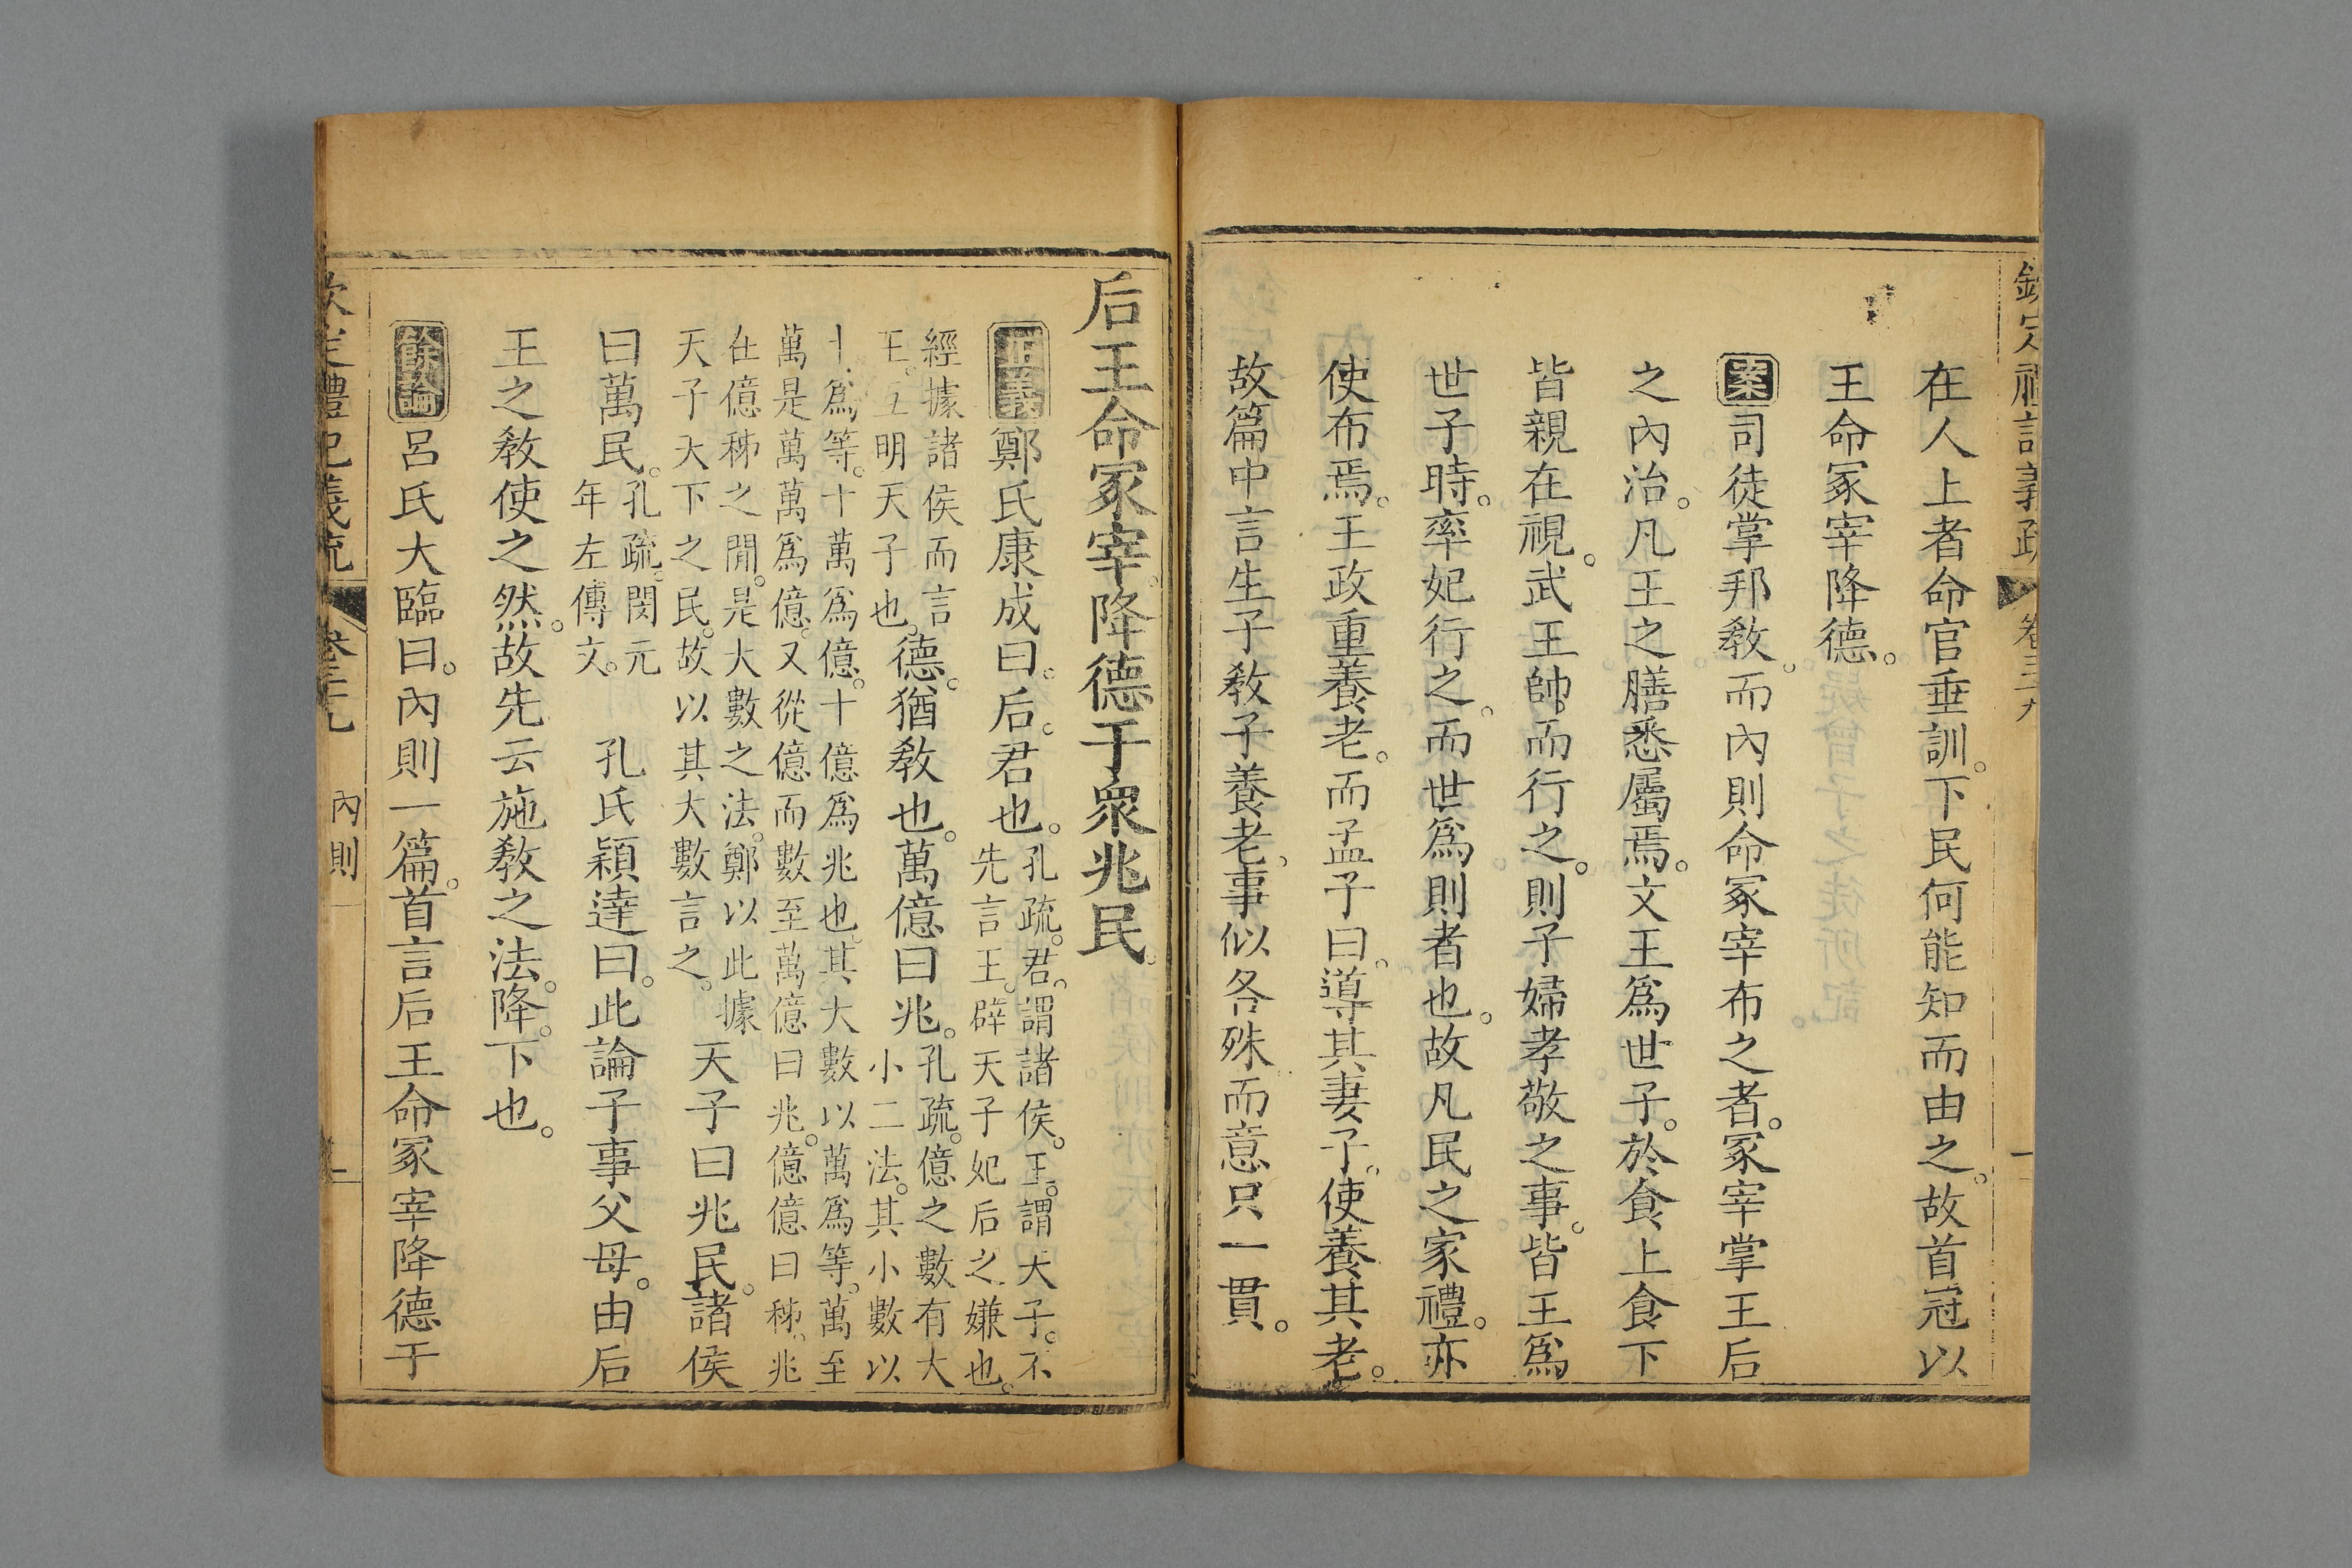 欽定禮記義疏 卷三九 一
在人上者命官垂訓。下民何能知而由之。故首冠以
王命冢宰降德。
案司徒掌邦敎。而內則命冢宰布之者。冢宰掌王后
之內治。凡王之膳悉屬焉。文王爲世子。於食上食下
皆親在視。武王帥而行之。則子婦孝敬之事。皆王爲
世子時。率妃行之。而世爲則者也。故凡民之家禮。亦
使布焉。王政重養老。而孟子曰。導其妻子。使養其老。
故篇中言生子敎子養老。事似各殊而意只一貫。
后王命冢宰。降德于衆兆民。
正義鄭氏康成曰。后。君也。孔疏。君。謂諸侯。王。謂天子。不
先言王。辟天子妃后之嫌也。
經據諸侯而言
王。互明天子也。德。猶敎也。萬億曰兆。孔疏。億之數有大
小二法。其小數以
十爲等。十萬爲億。十億爲兆也。其大數以萬爲等。萬至
萬是萬萬爲億。又從億而數至萬億曰兆。億億曰秭。兆
在億秭之閒。是大數之法。鄭以此據
天子天下之民。故以其大數言之。天子曰兆民。諸侯
曰萬民。孔疏。閔元
年左傳文。孔氏穎達曰。此論子事父母。由后
王之敎使之然。故先云施敎之法。降。下也。
餘論呂氏大臨曰。內則一篇。首言后王命冢宰降德于
欽定禮記義疏 卷三九 內則 二